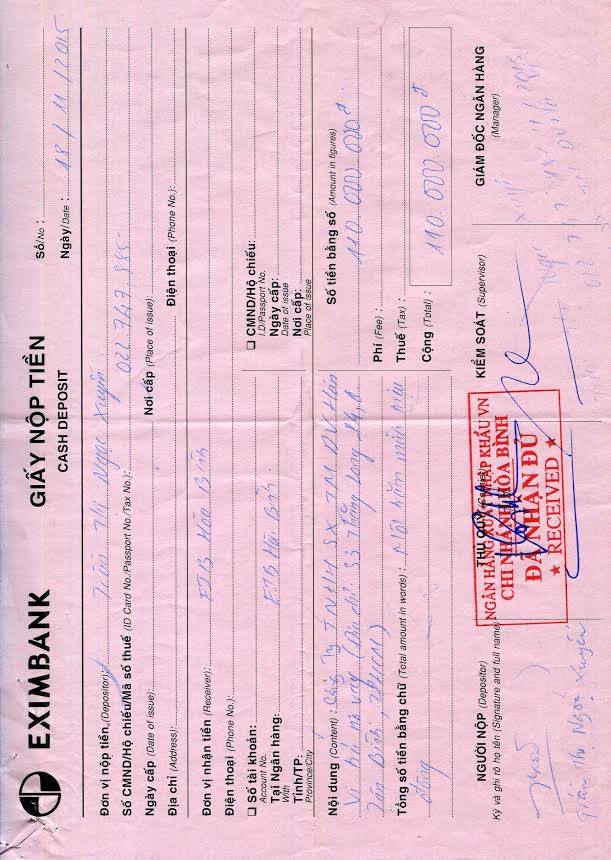 EXIMBANK
GIẤY NỘP TIỀN
CASH DEPOSIT
Số/No :
Ngày/Date : 18 / 11 / 2015
Đơn vị nộp tiền (Depositor): Trần Thị Ngọc Xuyến
Số CMND/Hộ chiếu/Mã số thuế (ID Card No./Passport No./Tax No.): 022 747 885
Ngày cấp (Date of issue): Nơi cấp (Place of issue):
Địa chỉ (Address): Điện thoại (Phone No.):
Đơn vị nhận tiền (Receiver): EIB Hòa Bình
Điện thoại (Phone No.):
Số tài khoản:
Account No.
Tại Ngân hàng: EIB Hòa Bình
With
Tỉnh/TP:
Province/City
CMND/Hộ chiếu:
I.D/Passport No.
Ngày cấp:
Date of issue
Nơi cấp:
Place of issue
Nội dung (Content) : Công Ty TNHH SX TM DV
trả nợ vay (Địa chỉ: 33 Thăng Long, P4, Q
Tân Bình, TPHCM)
Số tiền bằng số (Amount in figures)
110 000 000 đ
Phí (Fee) :
Thuế (Tax) :
Cộng (Total) : 110 000 000 đ
Tổng số tiền bằng chữ (Total amount in words) : Một trăm mười triệu
đồng
NGƯỜI NỘP (Depositor)
Ký và ghi rõ họ tên (Signature and full name)
Trần Thị Ngọc Xuyến
THỦ QUỸ
KIỂM SOÁT (Supervisor)
GIÁM ĐỐC NGÂN HÀNG
(Manager)
NGÂN HÀNG XUẤT NHẬP KHẨU VN
CHI NHÁNH HÒA BÌNH
ĐÃ NHẬN ĐỦ
★ RECEIVED ★